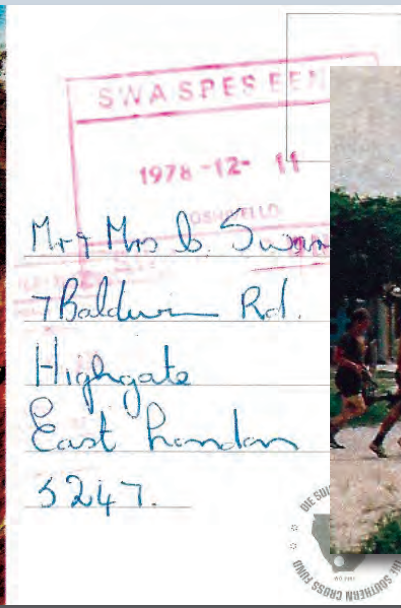 SWA SPES EEN
1978-12-11
OSHIVELLO
Mr + Mrs
7 Baldwin Rd.
Highgate
East London
5247.
DIE SOU
THE SOUTHERN CROSS FUND